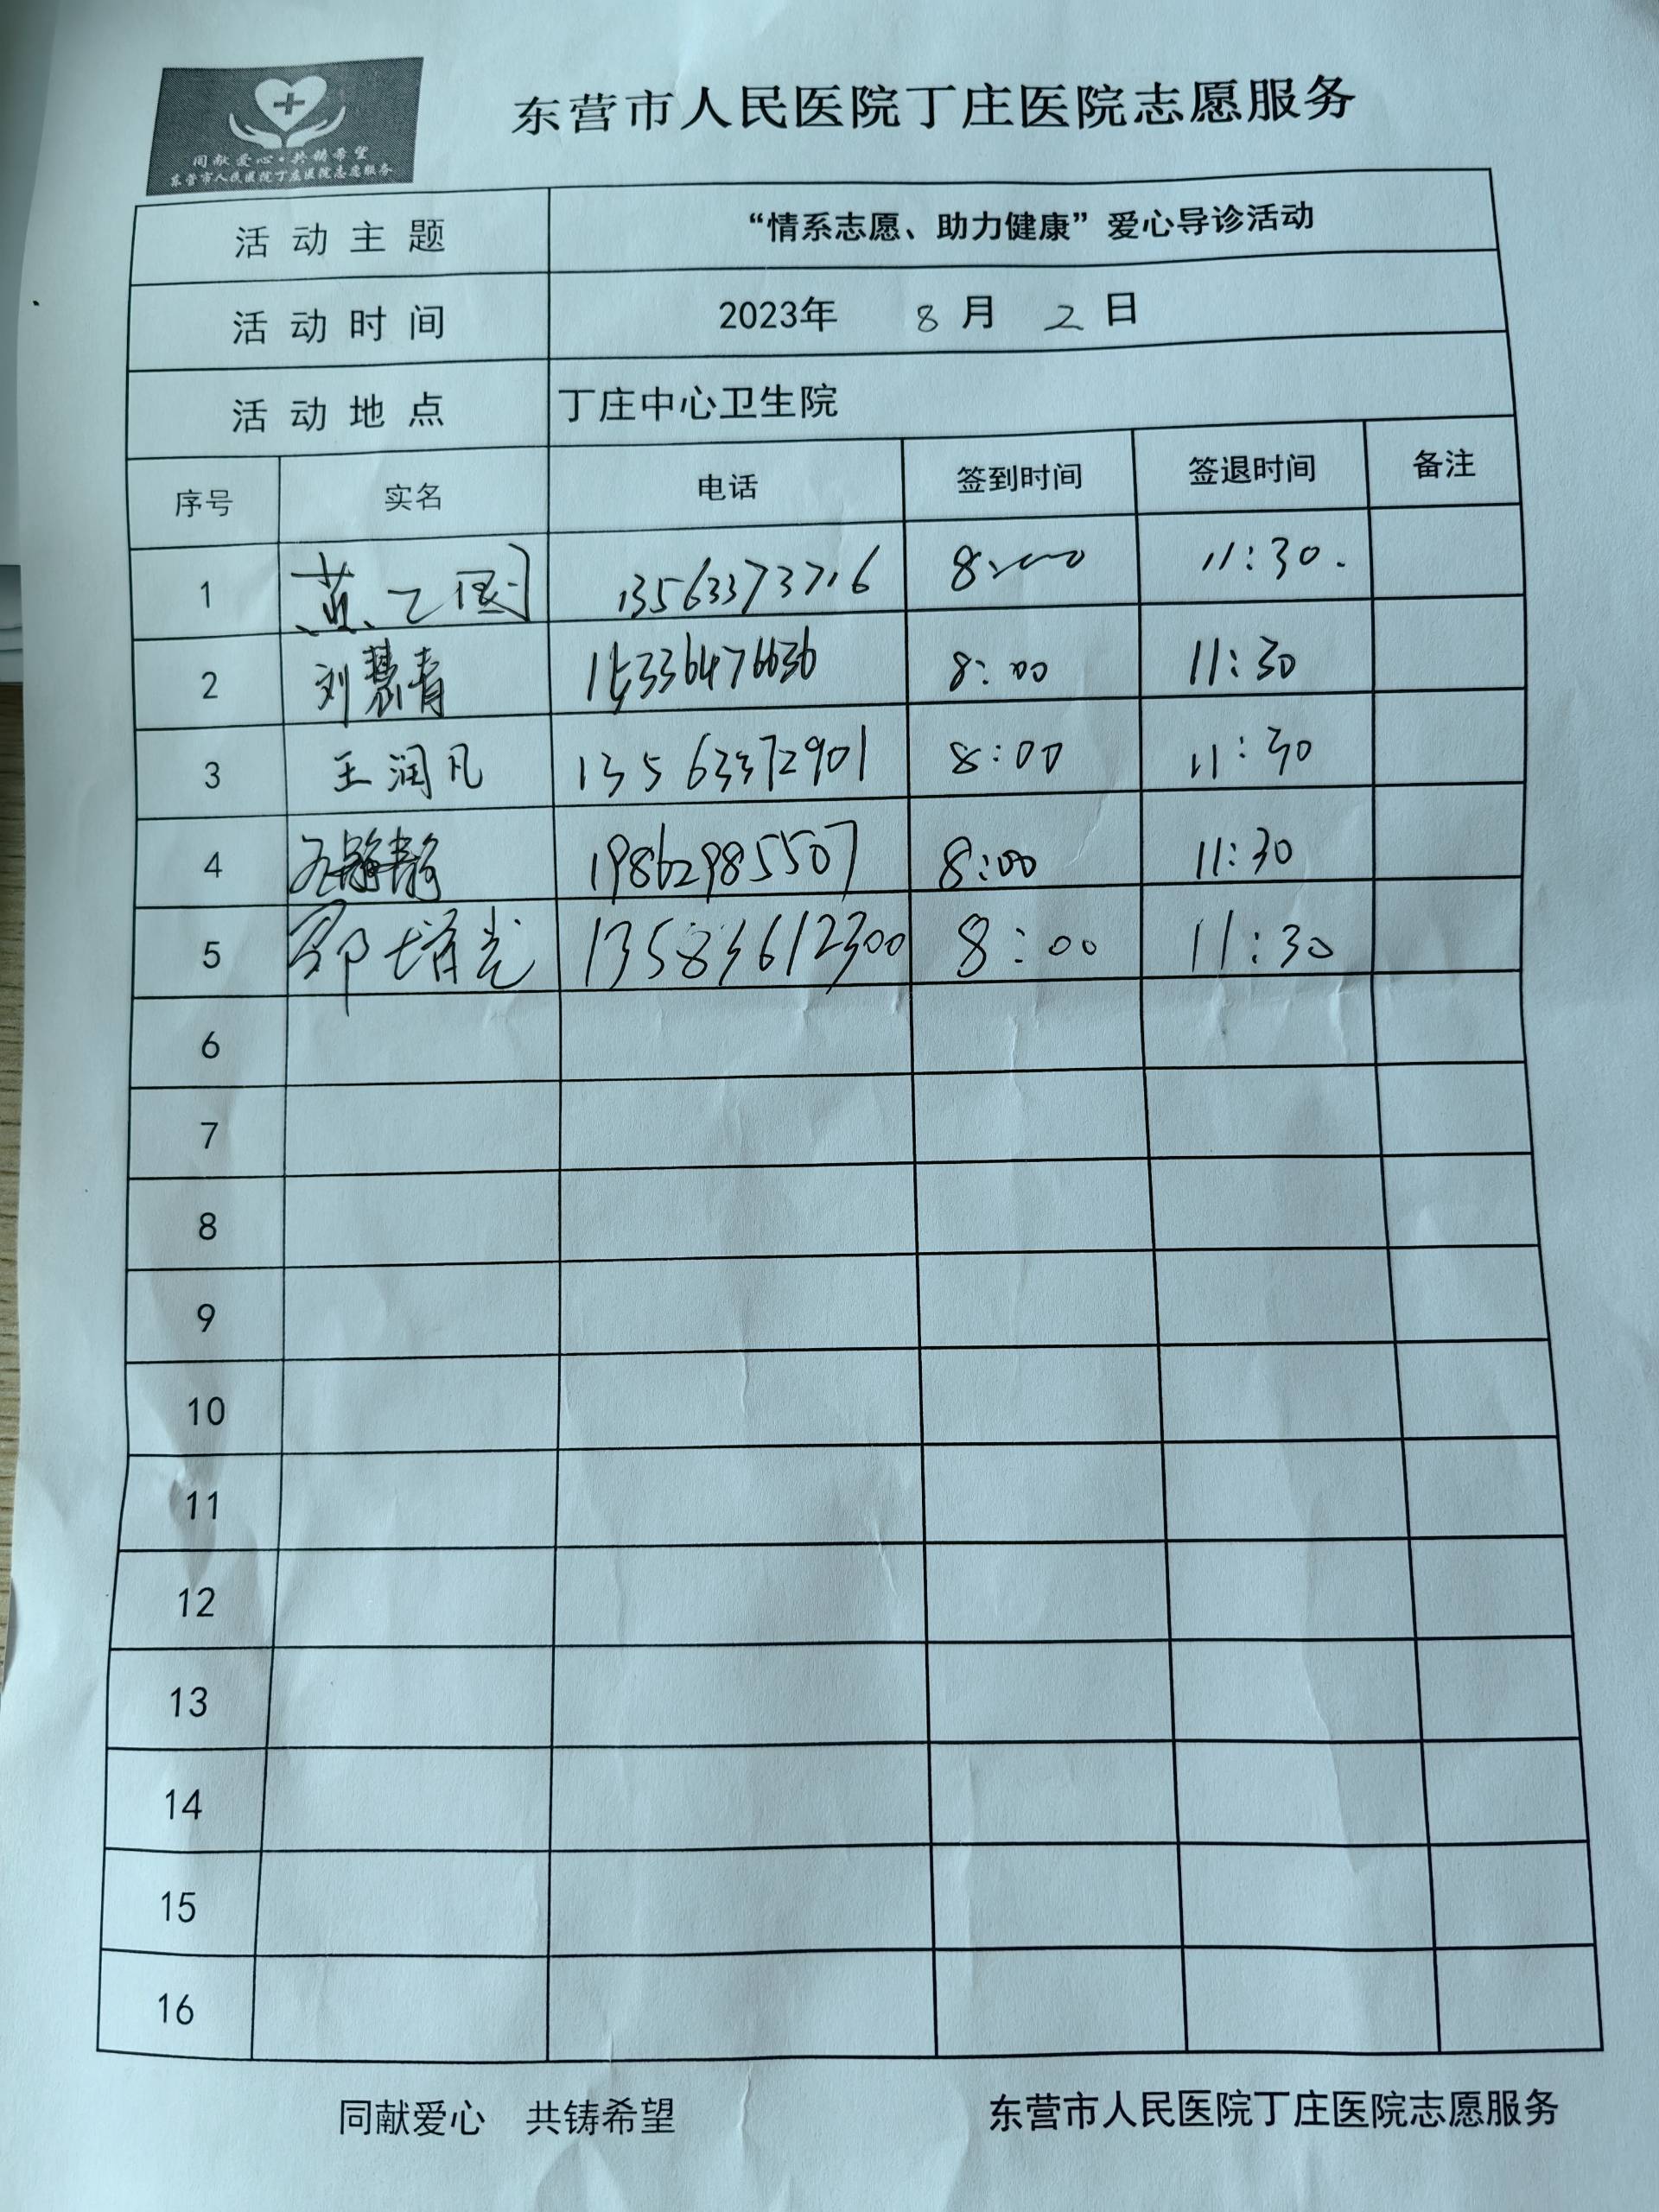 同献爱心·共铸希望
东营市人民医院丁庄医院志愿服务
东营市人民医院丁庄医院志愿服务
活动主题 “情系志愿、助力健康”爱心导诊活动
活动时间 2023年 8 月 2 日
活动地点 丁庄中心卫生院
序号 实名 电话 签到时间 签退时间 备注
1 11:30.
2 刘慧青 8:00 11:30
3 王润凡 13563372901 8:00 11:30
4 19862985507 8:00 11:30
5 13583612300 8:00 11:30
6
7
8
9
10
11
12
13
14
15
16
同献爱心 共铸希望 东营市人民医院丁庄医院志愿服务